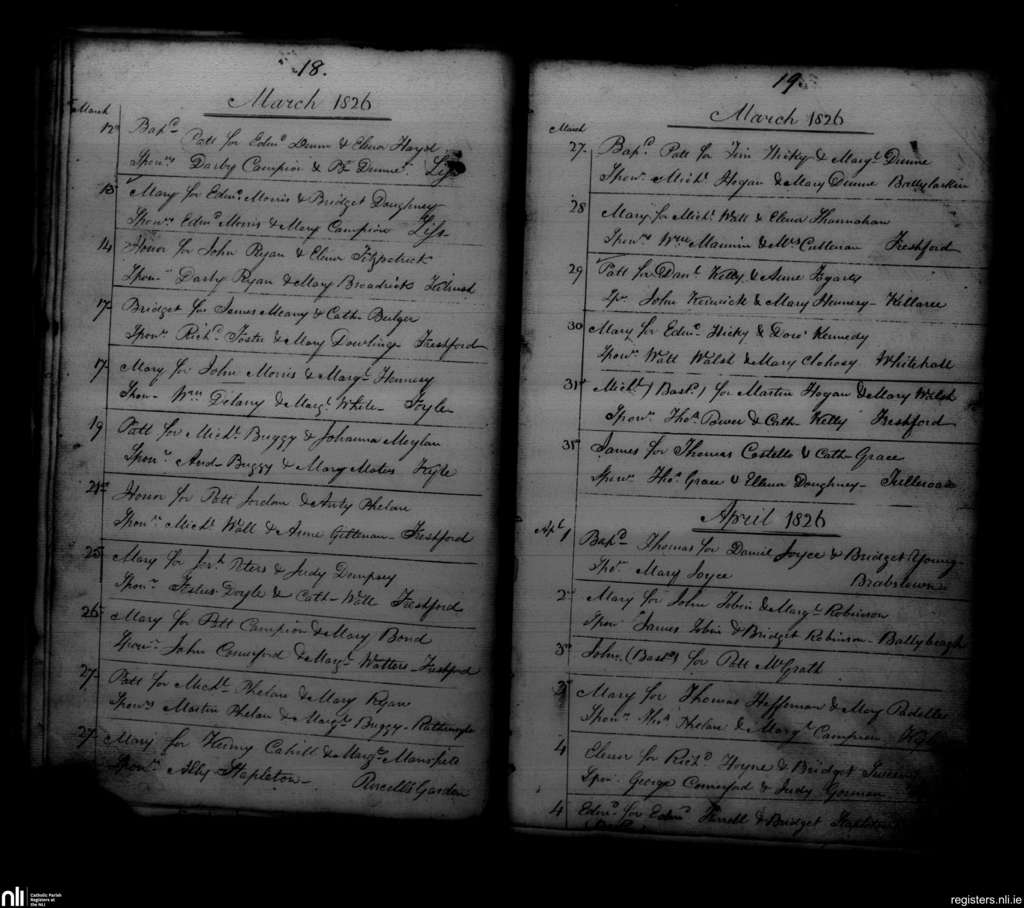 18.
March 1826
March
12 Bapd Patt for Edmd Dunne & Elenor Hayd
Sponrs Darby Campion & Dunne. Lyss
13 Mary for Edmd Morris & Bridget Doughney
Sponrs Edmd Morris & Mary Campion Lyss
14 Honor for John Ryan & Elenor Fitzpatrick
Spon Darby Ryan & Mary Broadrick
17 Bridget for James Meany & Cath Bulger
Sponr Richd Foster & Mary Dowling Freshford
17 Mary for John Morris & Margt Hennesy
Spon Wm Delany & Margt White Foyle
19 Patt for Michl Buggy & Johanna Moylan
Sponr And Buggy & Mary Kyle
21st Honor for Patt Jordan & Anty Phelan
Sponr Michl Wall & Anne Freshford
25 Mary for Peters & Judy Dempsey
Sponr Doyle & Cath Wall Freshford
26 Mary for Patt Campion & Mary Bond
Sponr John Comerford & Margt Watters Freshford
27 Patt for Michl Phelan & Mary Ryan
Sponrs Martin Phelan & Margt Buggy
27 Mary for Cahill & Margt
Sponr Ally Stapleton Purcells Garden
19.
March 1826
March
27. Bapd Patt for Tim Hicky & Margt Dunne
Sponr Michl Hogan & Mary Dunne Ballylarkin
28 Mary for Michl Wall & Elenor Shannahan
Sponrs Wm & Mrs Freshford
29 Patt for Danl Kelly & Anne Fogarty
Sp. John Kenwick & Mary Hennery Killaree
30 Mary for Edmd Hicky & Kennedy
Sponr Watt Walsh & Mary Clohosy Whitehall
31st Michl (Bastd) for Martin Hogan & Mary Walsh
Sponr Thos Power & Cath. Kelly Freshford
31st James for Thomas Costello & Cath Grace
Sponr Thos Grace & Ellenor Doughney
April 1826
Apl 1 Bapd Thomas for Daniel Joyce & Bridget Young
Mary Joyce Brabstown
2nd Mary for John Tobin & Margt Robinson
Spon James Tobin & Bridget Robinson Ballybeagh
3rd John (Bastd) for Patt McGrath
3rd Mary for Thomas Heffernan & Mary
Sponr Thos Phelan & Margt Campion
4 Elenor for Richd Hoyne & Bridget
Spon. George Comerford & Judy Gorman
4 Edmd for Edmd Farrell & Bridget Stapleton
nli Catholic Parish Registers at the NLI
registers.nli.ie